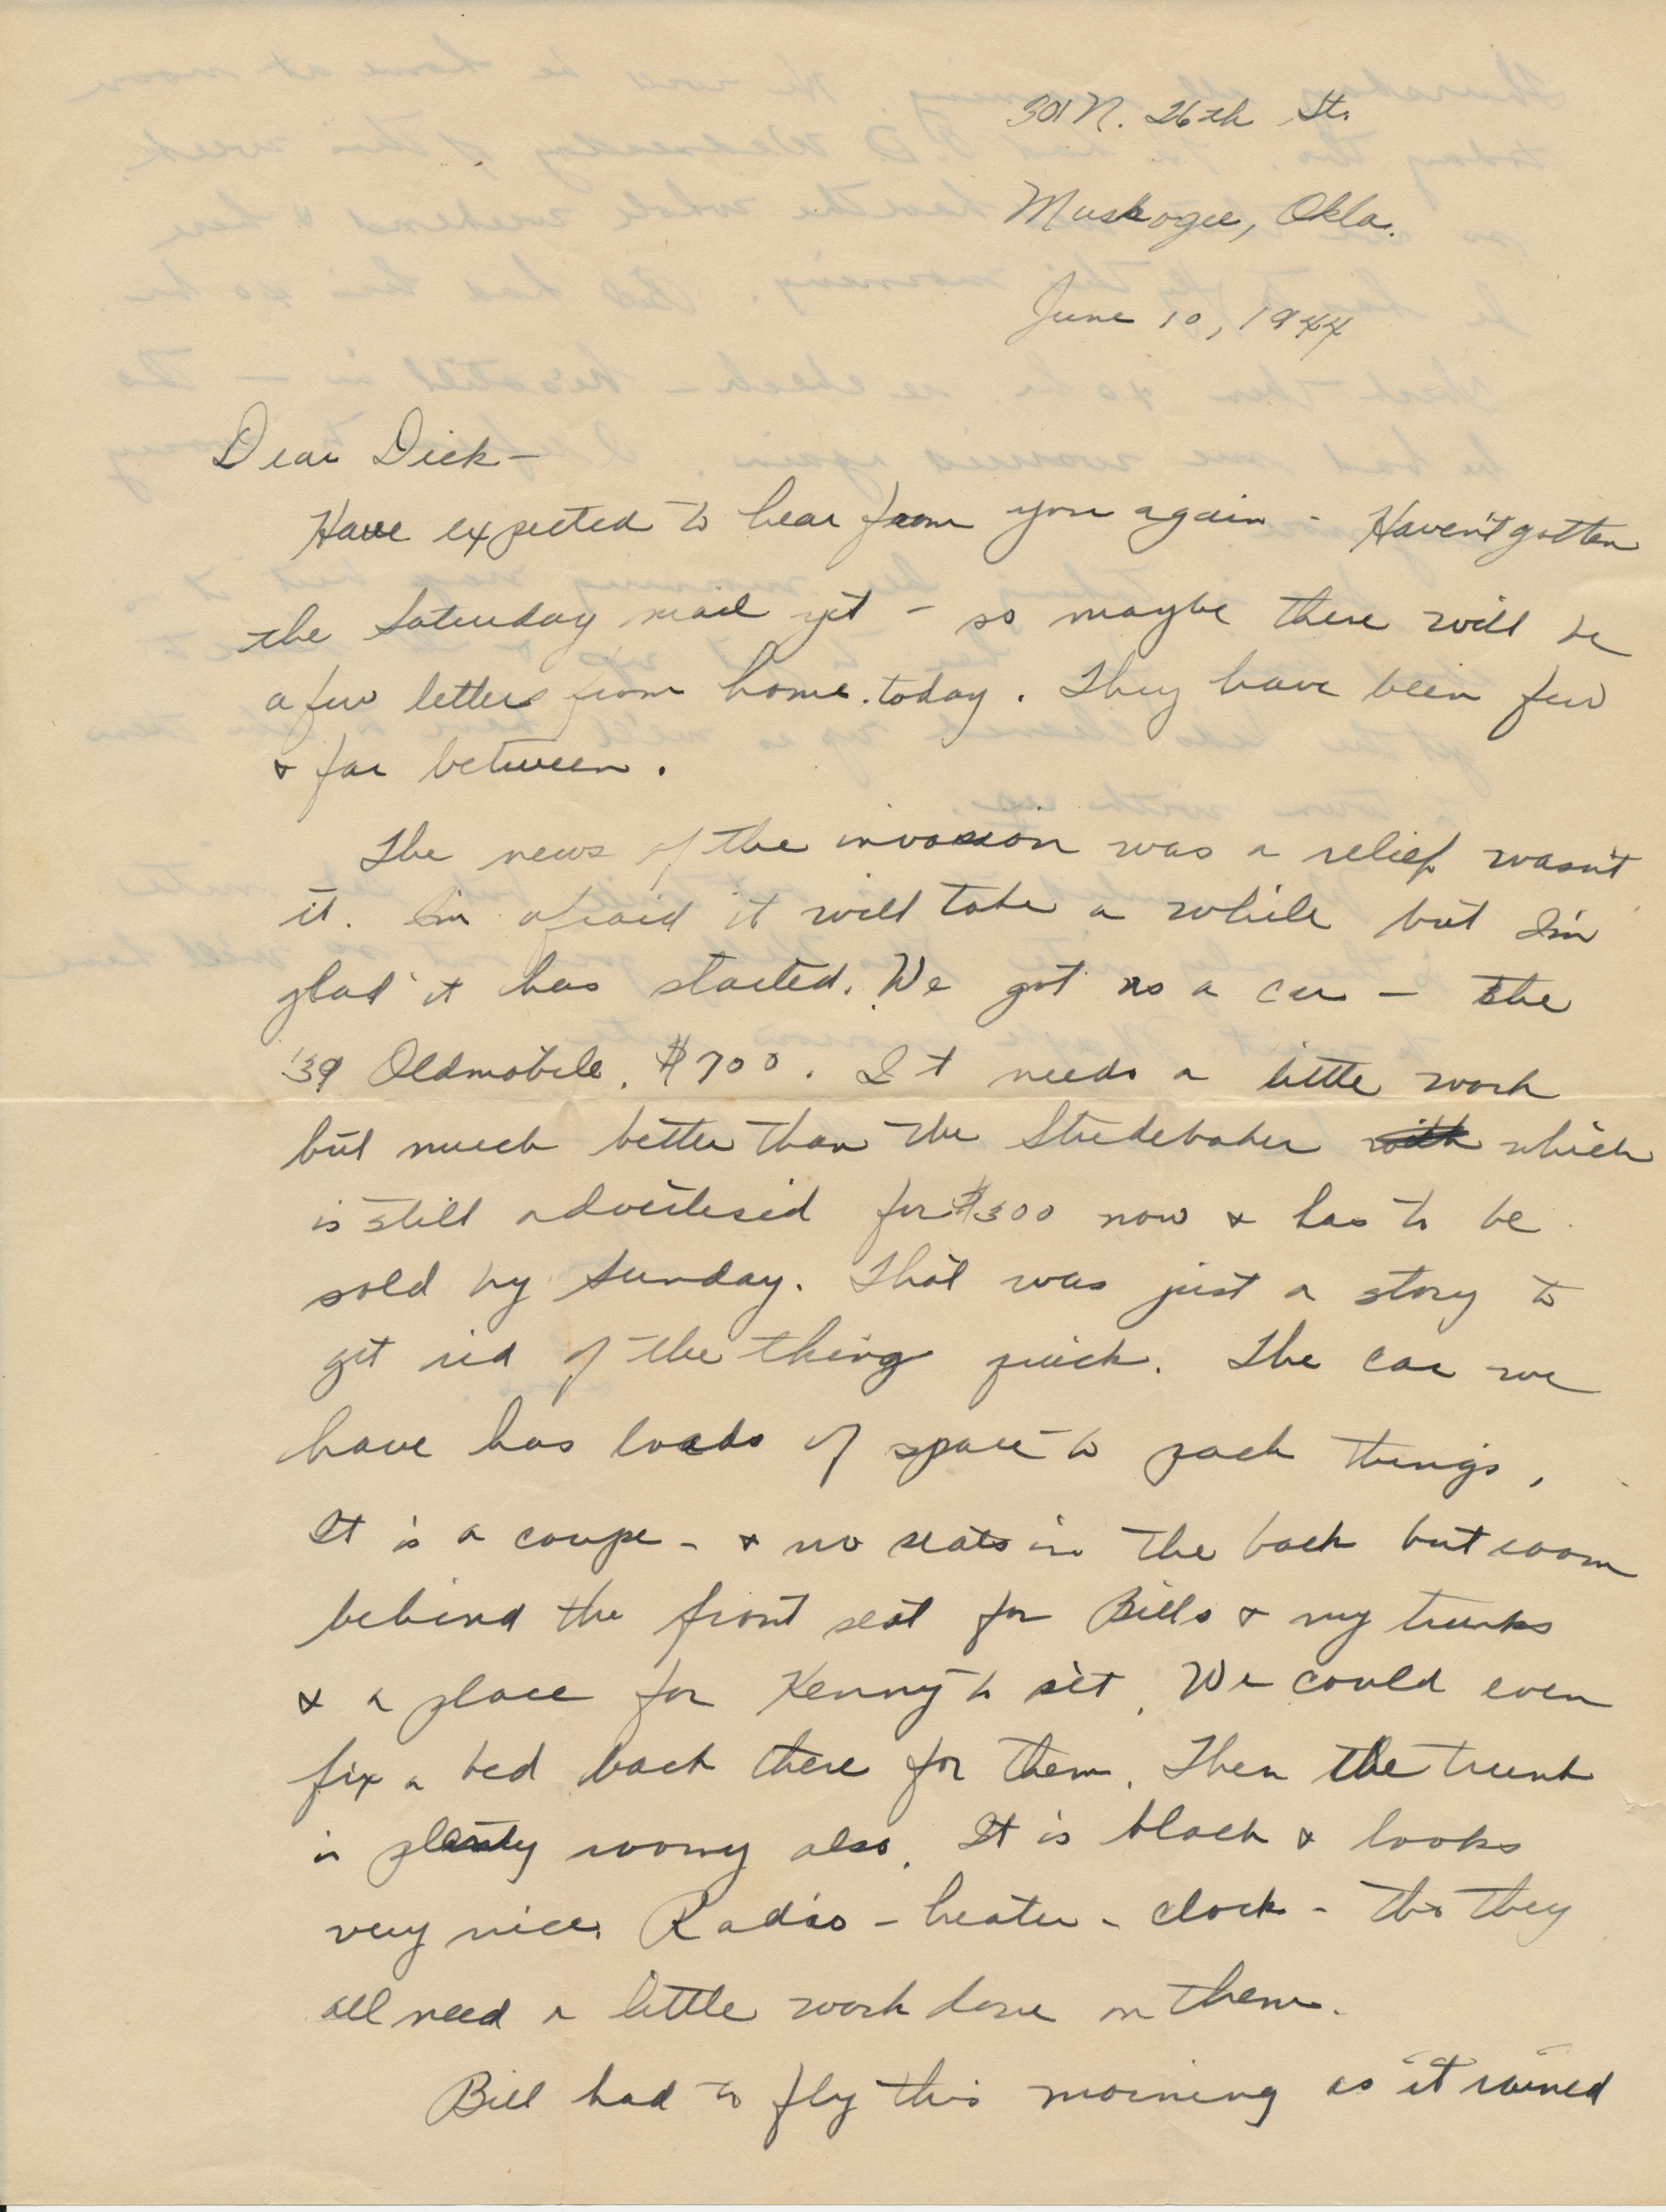 301 N. 26th St.
Muskogee, Okla.
June 10, 1944
Dear Dick -
Have expected to hear from you again - Haven't gotten
the Saturday mail yet - so maybe there will be
a few letters from home today. They have been few
& far between.
The news of the invasion was a relief wasn't
it. I'm afraid it will take a while but I'm
glad it has started. We got us a car - the
'39 Oldmobile. $700. It needs a little work
but much better than the Studebaker which
is still advertised for $300 now & has to be
sold by Sunday. That was just a story to
get rid of the thing quick. The car we
have has loads of space to pack things,
It is a coupe - & no seats in the back but room
behind the front seat for Bills & my trunks
& a place for Kenny to sit. We could even
fix a bed back there for them. Then the trunk
is plenty roomy also. It is black & looks
very nice. Radio - heater - clock - tho they
all need a little work done on them.
Bill had to fly this morning as it rained